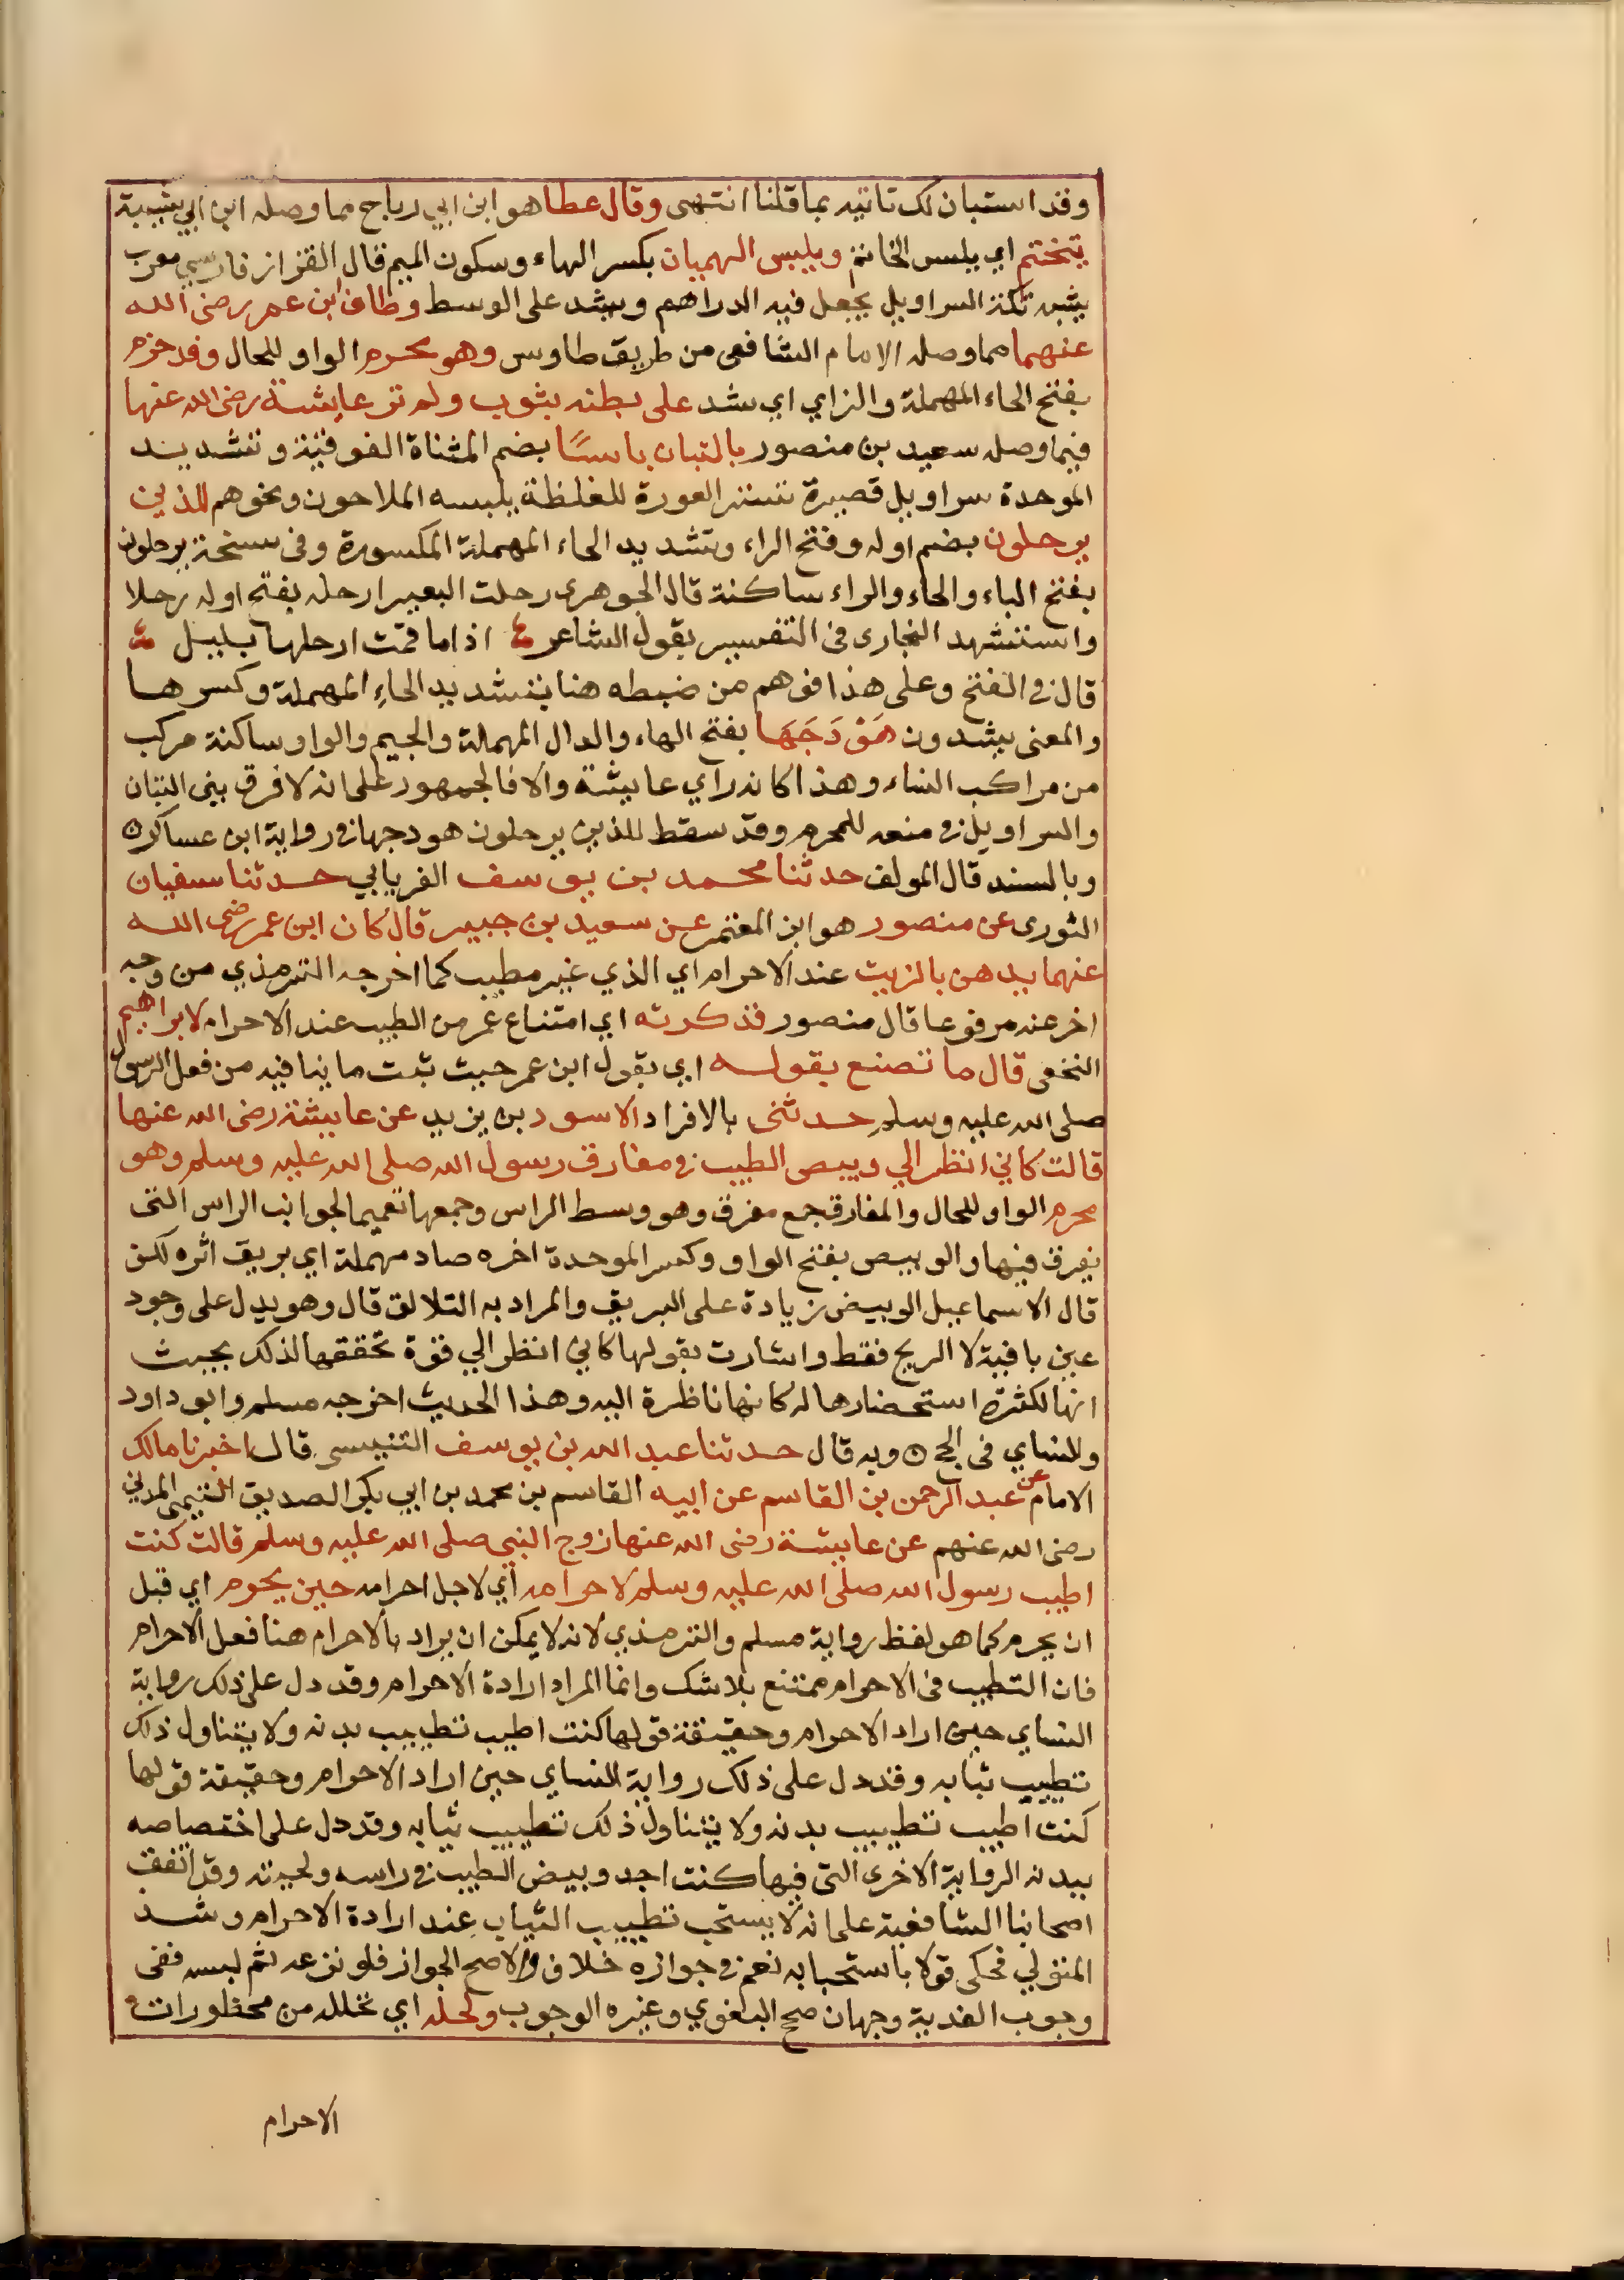 وقد استبان لك تاتيه بما قلنا انتهى وقال عطا هو ابن ابي رباح مما وصله ابن ابي شيبة
يتختم اي يلبس الخاتم ويلبس الهميان بكسر الهاء وسكون الميم قال القزاز فارسي معرب
يشبه تكة السراويل يجعل فيه الدراهم ويشد على الوسط وطاف ابن عمر رضى الله
عنهما مما وصله الامام الشافعى من طريق طاوس وهو محرم الواو للحال وقد حزم
بفتح الحاء المهملة والزاي اي شد على بطنه بثوب ولم تر عايشة رضى الله عنها
فيما وصله سعيد بن منصور بالتبان باسًا بضم المثناة الفوقية وتشديد
الموحدة سراويل قصيرة تستر العورة للغلظة يلبسه الملاحون ونحوهم للذين
يرحلون بضم اوله وفتح الراء وتشديد الحاء المهملة المكسورة وفى نسخة يرحلون
بفتح الياء والحاء والراء ساكنة قال الجوهرى رحلت البعير ارحله بفتح اوله رحلا
واستشهد البخارى فى التفسير بقول الشاعر اذا ما قمت ارحلها بليل
قال فى الفتح وعلى هذا فوهم من ضبطه هنا بتشديد الحاء المهملة وكسرها
والمعنى يشدون هَوْدَجَهَا بفتح الهاء والدال المهملة والجيم والواو ساكنة مركب
من مراكب النساء وهذا كانه راي عايشة والا فالجمهور على انه لا فرق بين التبان
والسراويل فى منعه للمحرم وقد سقط للذين يرحلون هودجها فى رواية ابن عساكر
وبالسند قال المولف حدثنا محمد بن يوسف الفريابي حدثنا سفيان
الثورى عن منصور هو ابن المعتمر عن سعيد بن جبير قال كان ابن عمر رضى الله
عنهما يدهن بالزيت عند الاحرام اي الذي غير مطيب كما اخرجه الترمذي من وجه
اخر عنه مرفوعا قال منصور فذكرته اي امتناع عمر من الطيب عند الاحرام لابراهيم
النخعى قال ما تصنع بقوله اي بقول ابن عمر حيث ثبت ما ينافيه من فعل الرسول
صلى الله عليه وسلم حدثنى بالافراد الاسود بن يزيد عن عايشة رضى الله عنها
قالت كاني انظر الي وبيص الطيب فى مفارق رسول الله صلى الله عليه وسلم وهو
محرم الواو للحال والمفارق جمع مفرق وهو وسط الراس وجمعها تعميما لجوانب الراس التى
يفرق فيها والوبيص بفتح الواو وكسر الموحدة اخره صاد مهملة اي بريق اثره لكن
قال الاسماعيل الوبيض زيادة على البريق والمراد به التلالق قال وهو يدل على وجود
عين باقية لا الريح فقط واشارت بقولها كاني انظر الي قوة تحققها لذلك بحيث
انها لكثرة استحضارها له كانها ناظرة اليه وهذا الحديث اخرجه مسلم وابو داود
والنساي فى الحج وبه قال حدثنا عبد الله بن يوسف التنيسى قال اخبرنا مالك
الامام عن عبد الرحمن بن القاسم عن ابيه القاسم بن محمد بن ابي بكر الصديق التيمى المدني
رضى الله عنهم عن عايشة رضى الله عنها زوج النبي صلى الله عليه وسلم قالت كنت
اطيب رسول الله صلى الله عليه وسلم لاحرامه اي لاجل احرامه حين يحرم اي قبل
ان يحرم كما هو لفظ رواية مسلم والترمذي لانه لا يمكن ان يراد بالاحرام هنا فعل الاحرام
فان التطيب فى الاحرام ممتنع بلا شك وانما المراد ارادة الاحرام وقد دل على ذلك رواية
النساي حين اراد الاحرام وحقيقة قولها كنت اطيب تطييب بدنه ولا يتناول ذلك
تطييب ثيابه وقد دل على ذلك رواية النساي حين اراد الاحرام وحقيقة قولها
كنت اطيب تطييب بدنه ولا يتناول ذلك تطييب ثيابه وقد دل على اختصاصه
ببدنه الرواية الاخرى التى فيها كنت اجد وبيض الطيب فى راسه ولحيته وقد اتفق
اصحابنا الشافعية على انه لا يستحب تطييب الثياب عند ارادة الاحرام وشذ
المتولي فحكى قولا باستحبابه نعم فى جوازه خلاف والاصح الجواز فلو نزعه ثم لبسه ففى
وجوب الفدية وجهان صحح البغوي وغيره الوجوب ولحله اي تحلله من محظورات
الاحرام